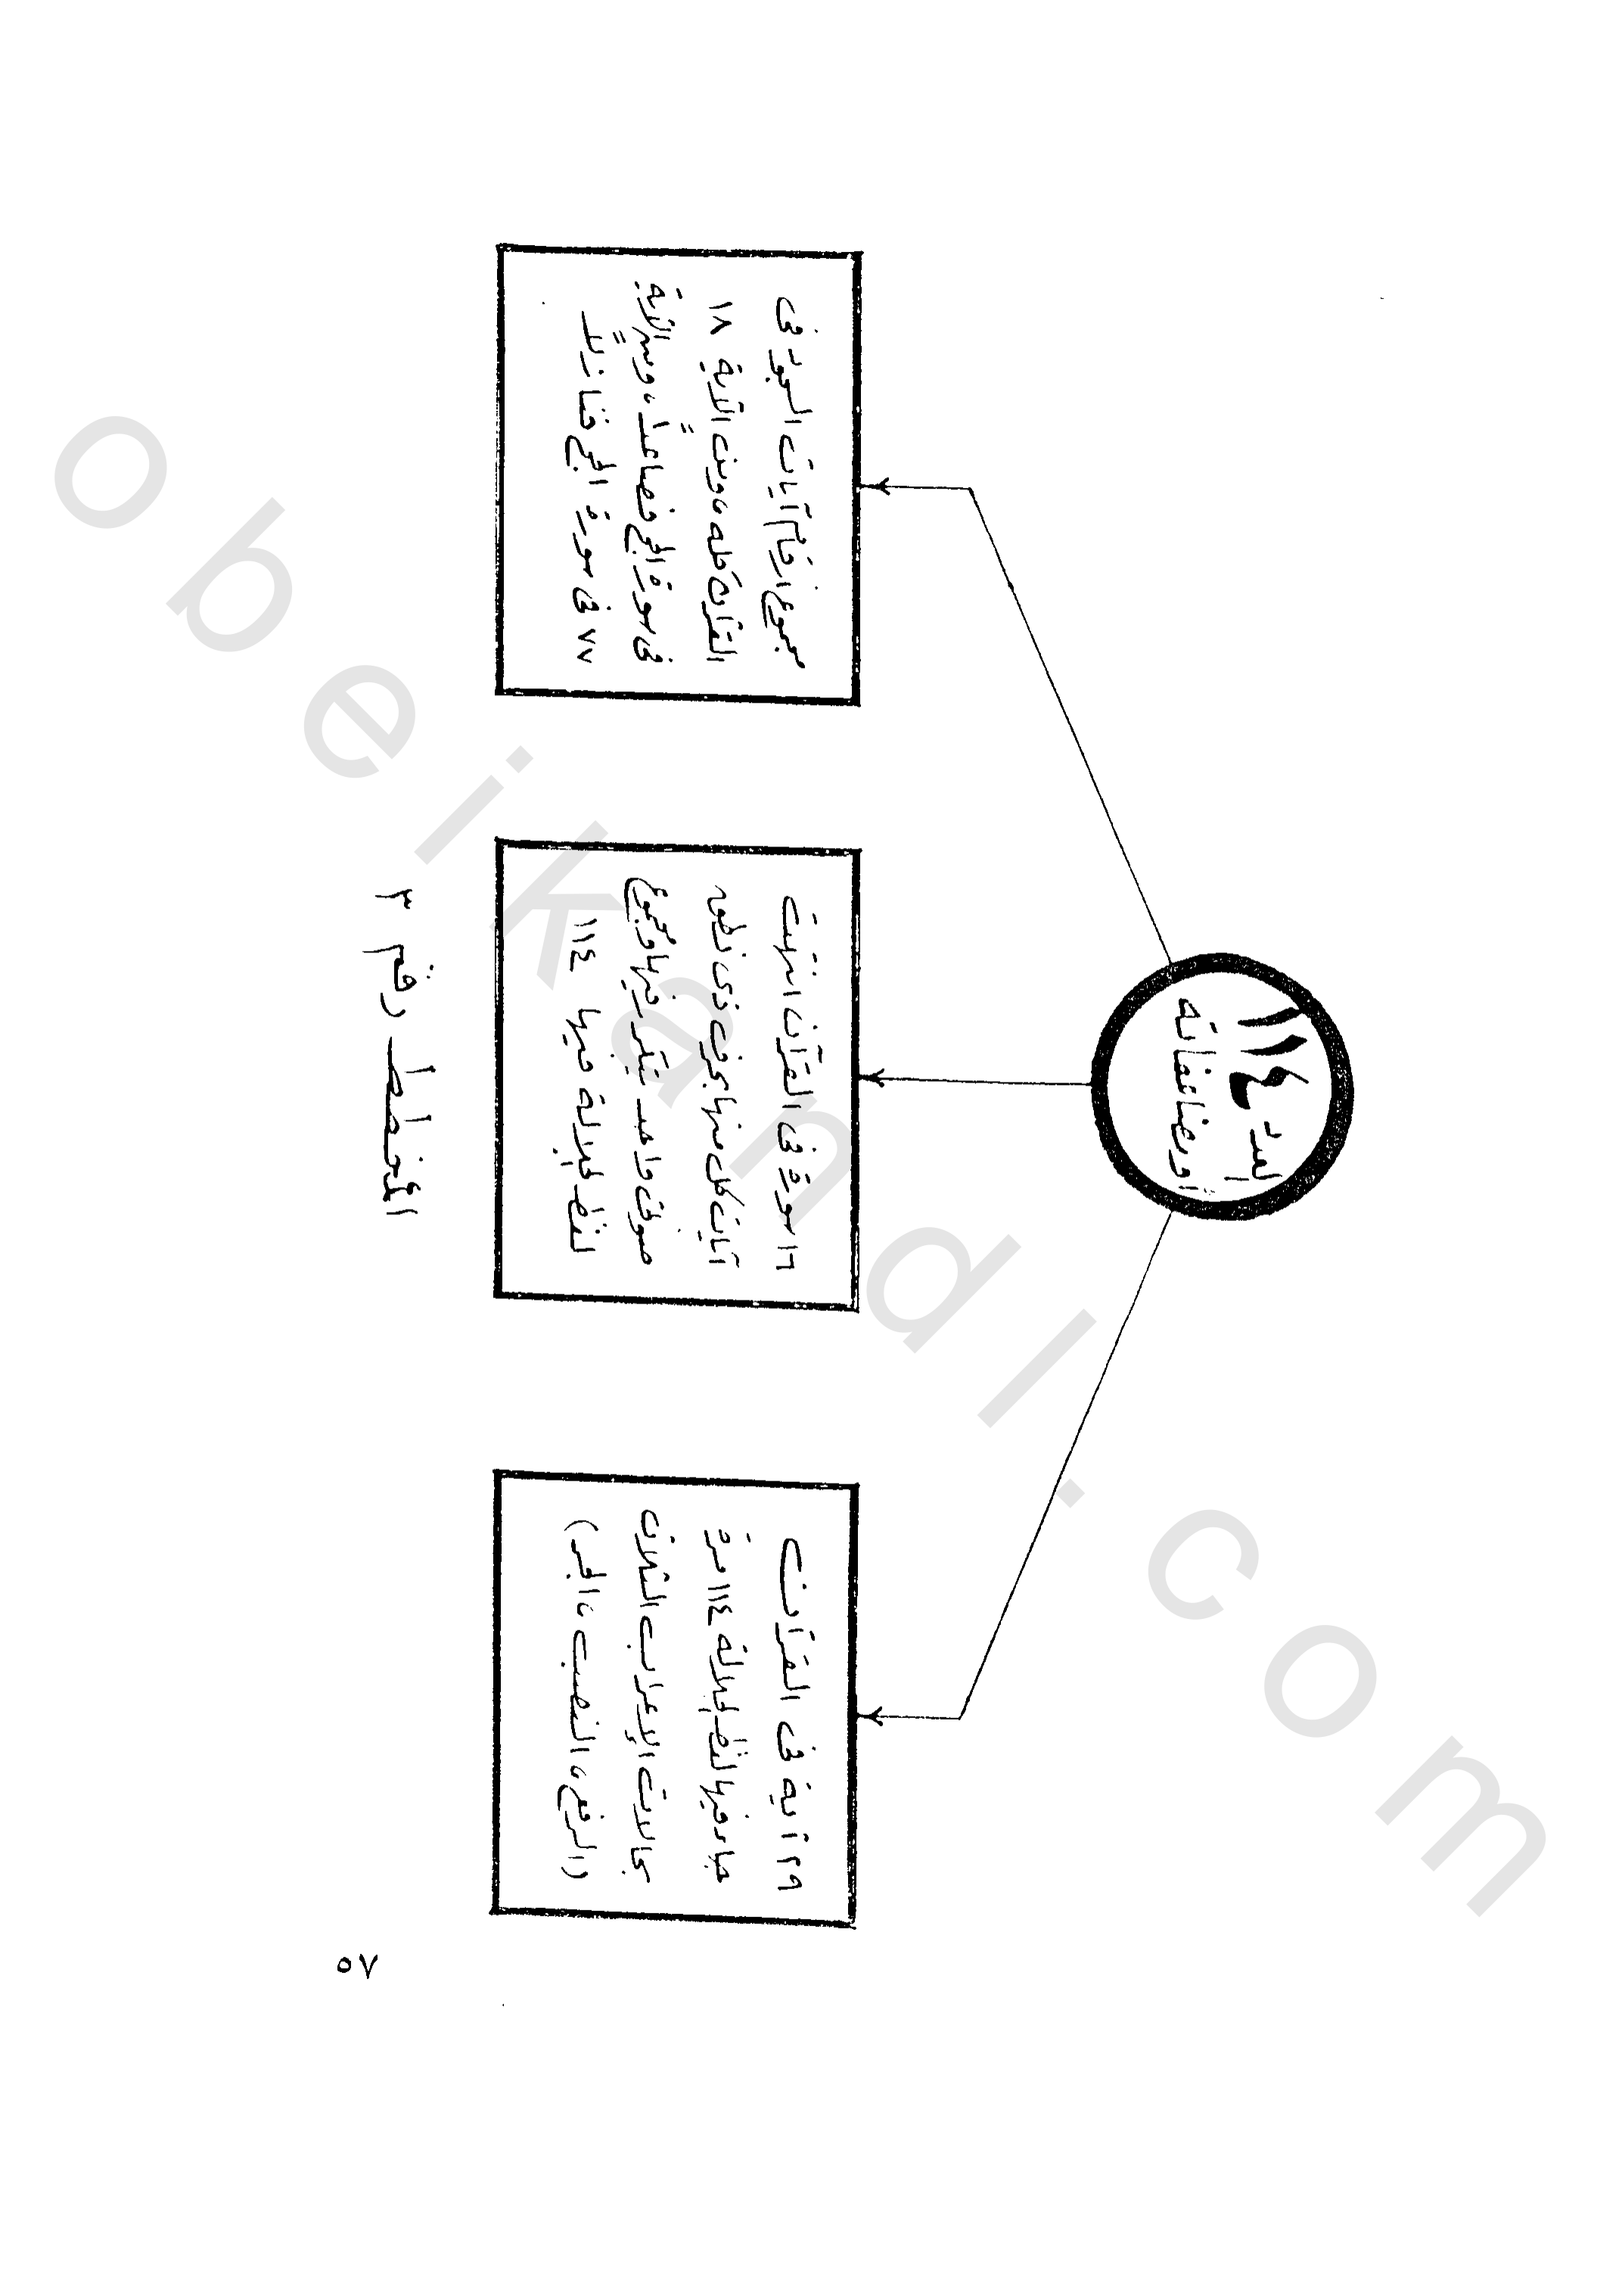 العدد ١١٤
أو مضاعفاته
٢٩ آية في القرآن
جاء فيها لفظ الجلالة ١١٤ مرة
بحالات الإعراب الثلاث
(الرفع، النصب، الجر)
١٦ سورة في القرآن انتهت
آيات كل منها بحرف ذي نطق
صوتي واحد يتكرر فيها ومجموع
لفظ الجلالة فيها ١١٤
مجموع أرقام آيات السجود في
القرآن كله، ومن الآية ١٨
في سورة الحج فصاعداً، ومن الآية
٧٧ في سورة الحج فنازلاً
المخطط رقم ٣
٥٧
obeikandl.com